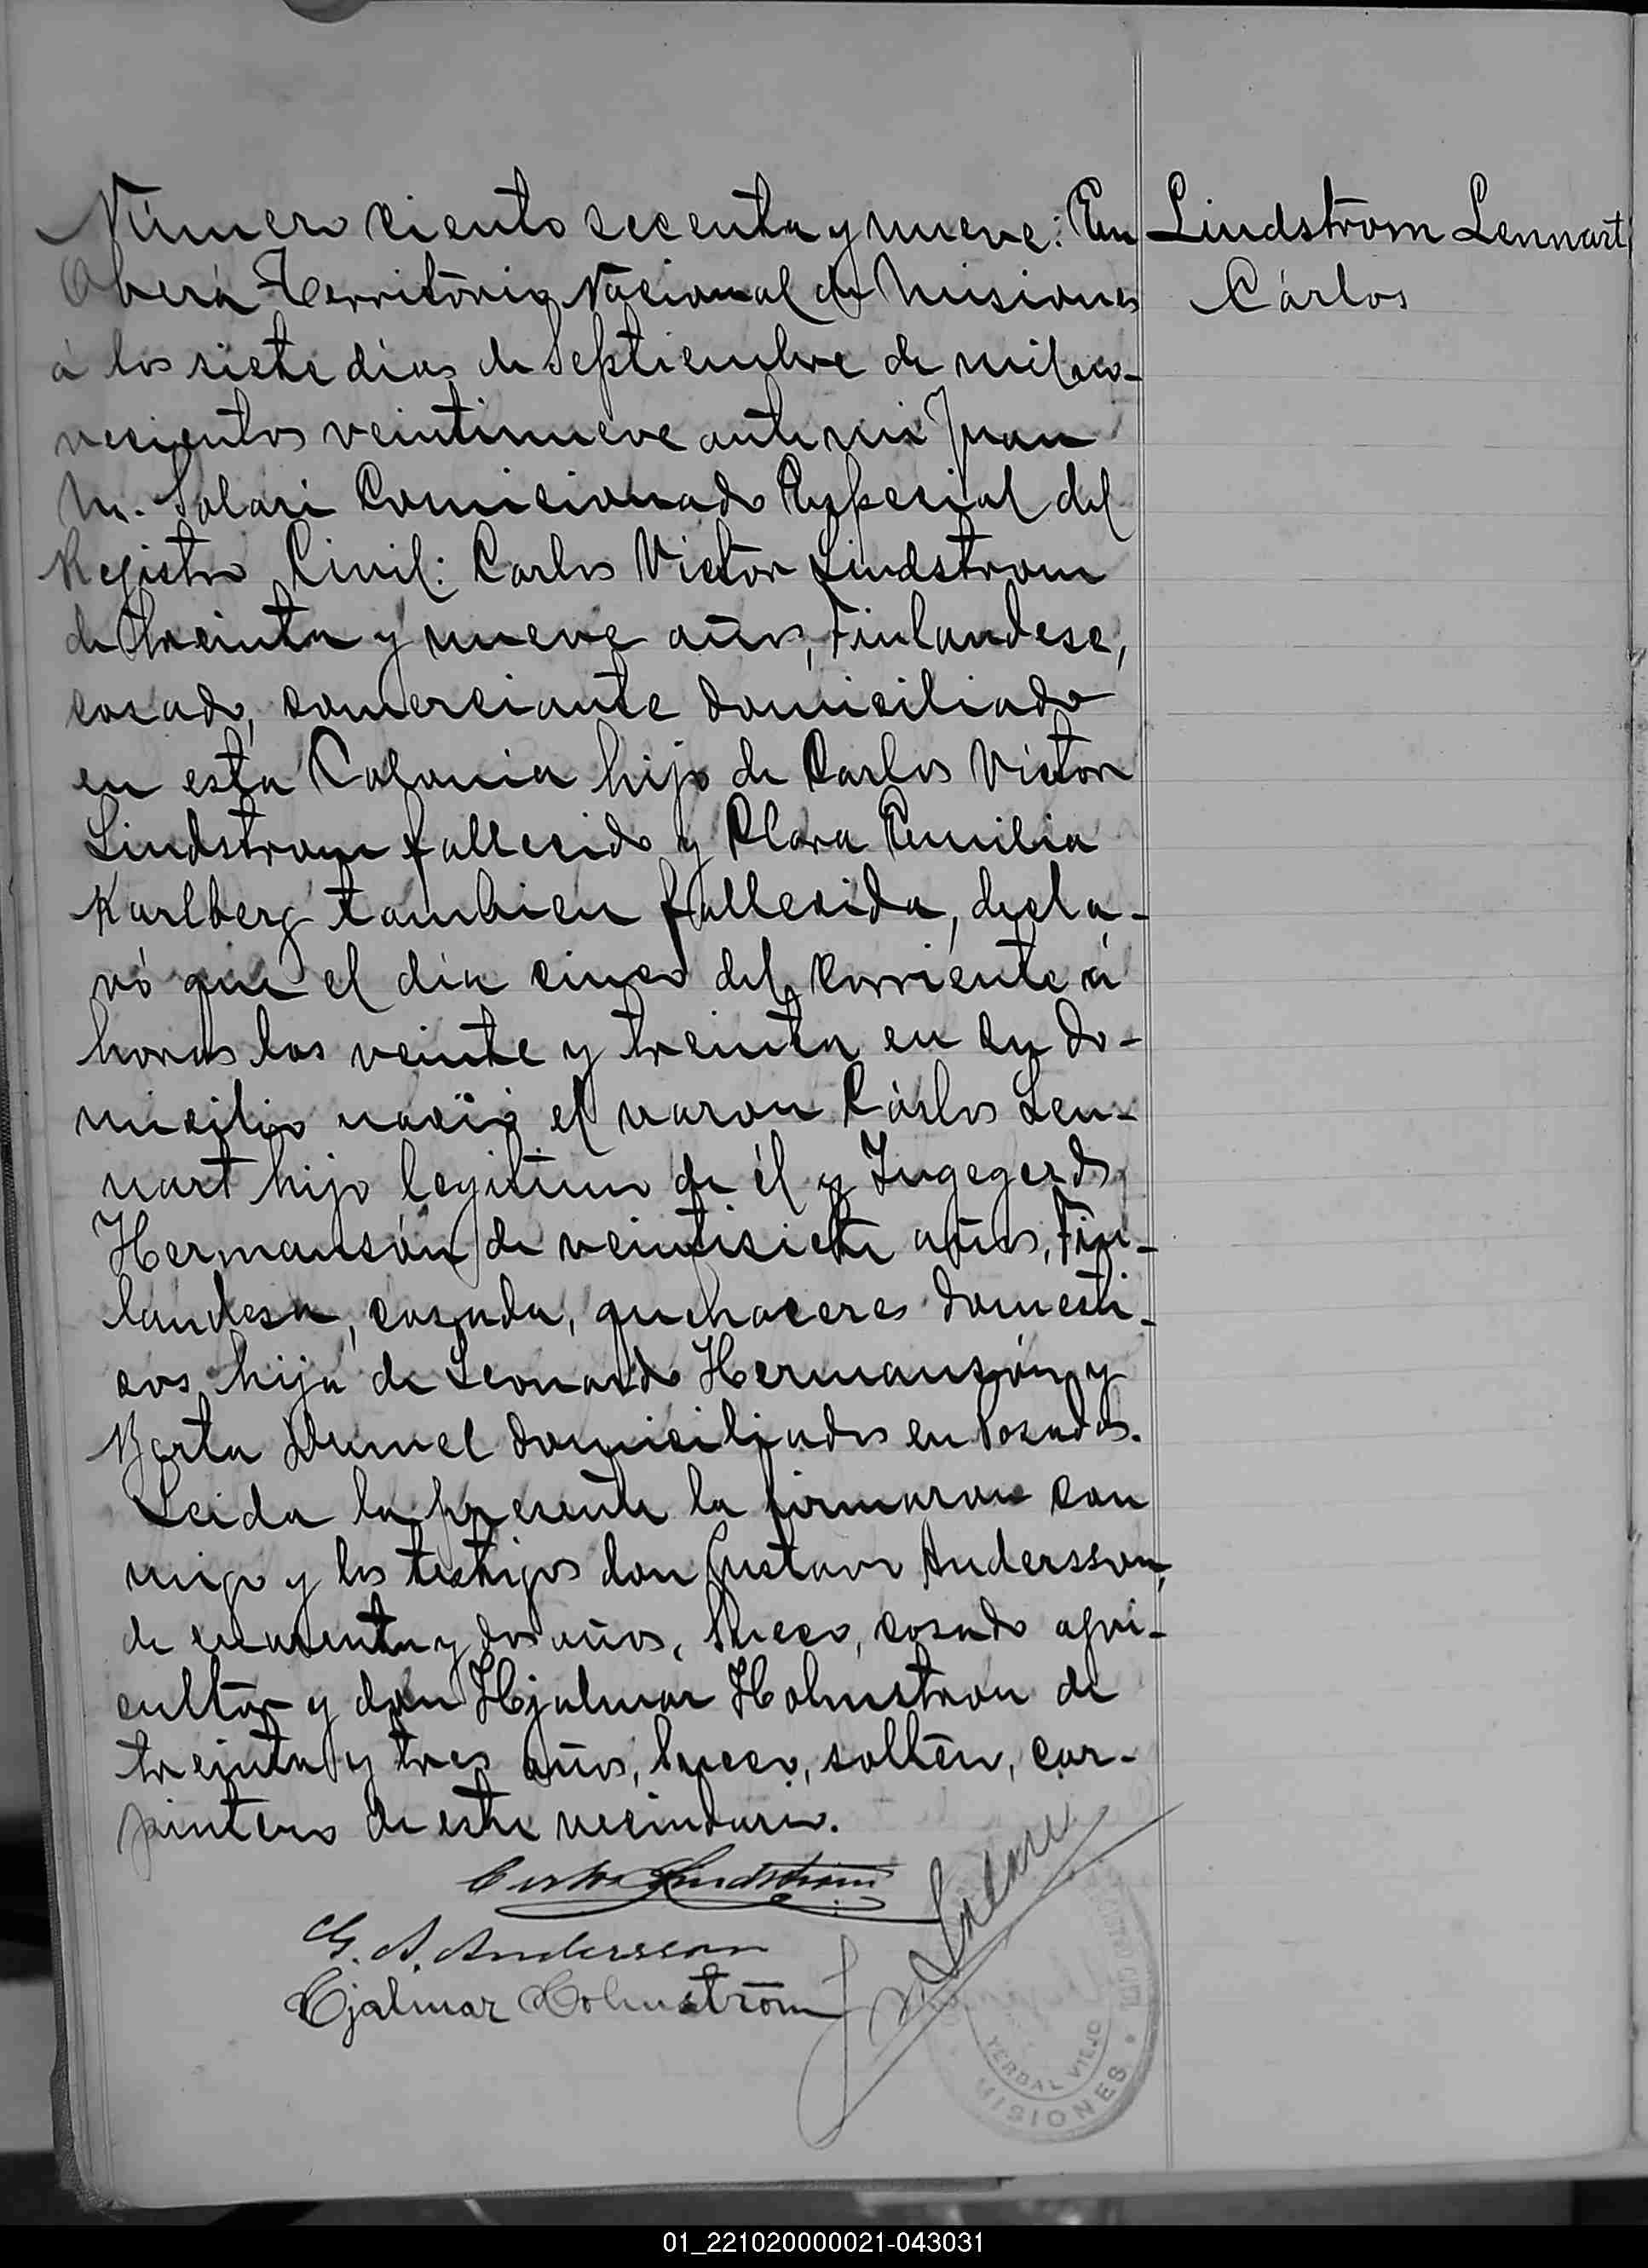 Número ciento secenta y nueve: En
Oberá Territorio Nacional de Misiones
á los siete días de Septiembre de mil no-
vecientos veintinueve ante mi Juan
M. Solari Comicionado Especial del
Registro Civil: Carlos Victor Lindstrom
de treinta y nueve años, Finlandese,
casado, comerciante domiciliado
en esta Colonia hijo de Carlos Victor
Lindstrom fallecido y Clara Emilia
Karlberg tambien fallecida, decla-
ró que el día cinco del corriente á
horas las veinte y treinta en su do-
micilio nació el varon Cárlos Len-
nart hijo legitimo de él y Ingegerd
Hermansón de veintisiete años, Fin-
landesa, casada, quehaceres domesti-
cos hija de Leonardo Hermansón y
Berta domiciliados en Posadas.
Leida la presente la firmaron con
migo y los testigos don Gustavo Andersson,
de cuarenta y dos años, Sueco, casado agri-
cultor y don Hjalmar Holmstron de
treinta y tres años, Sueco, soltero, car-
pintero de este vecindario.
Lindstrom Lennart
Cárlos
Carlos Lindström
G. A. Andersson
Hjalmar Holmström
J. M. Solari
YERBAL VIEJO
MISIONES
01_221020000021-043031